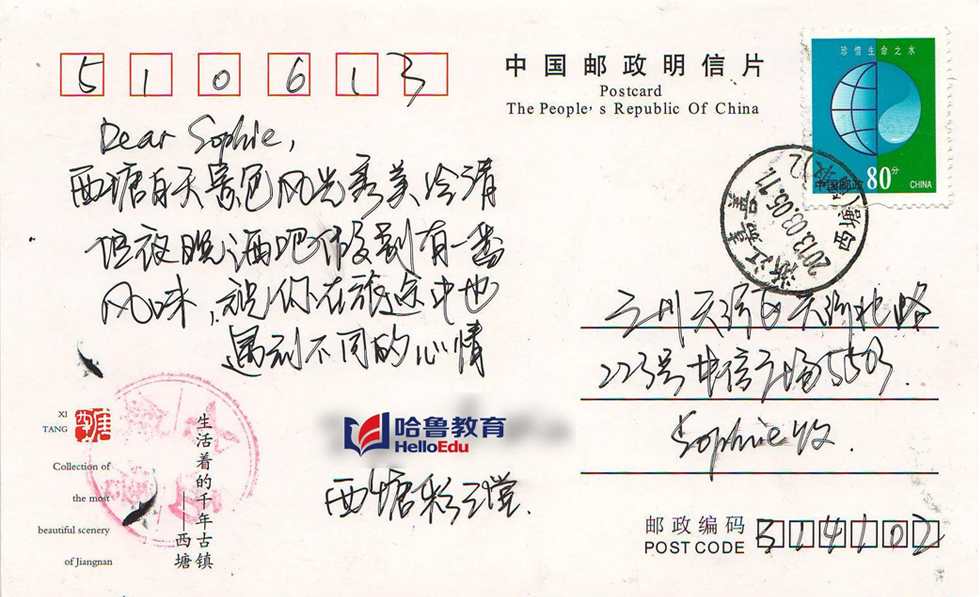 510613
中国邮政明信片
Postcard
The People's Republic Of China
珍惜生命之水
中国邮政 80分 CHINA
浙江嘉善
2013.03.05.11
西塘
Dear Sophie,
西塘白天景色风光秀美冷清
但夜晚酒吧街及别有一番
风味,祝你在旅途中也
遇到不同的心情
哈鲁教育
HelloEdu
西塘彩云堂.
广州天河区天河北路
223号中信广场5503.
Sophie收.
邮政编码
POST CODE 314102
XI
TANG
西塘
Collection of
the most
beautiful scenery
of Jiangnan
生活着的千年古镇
——西塘